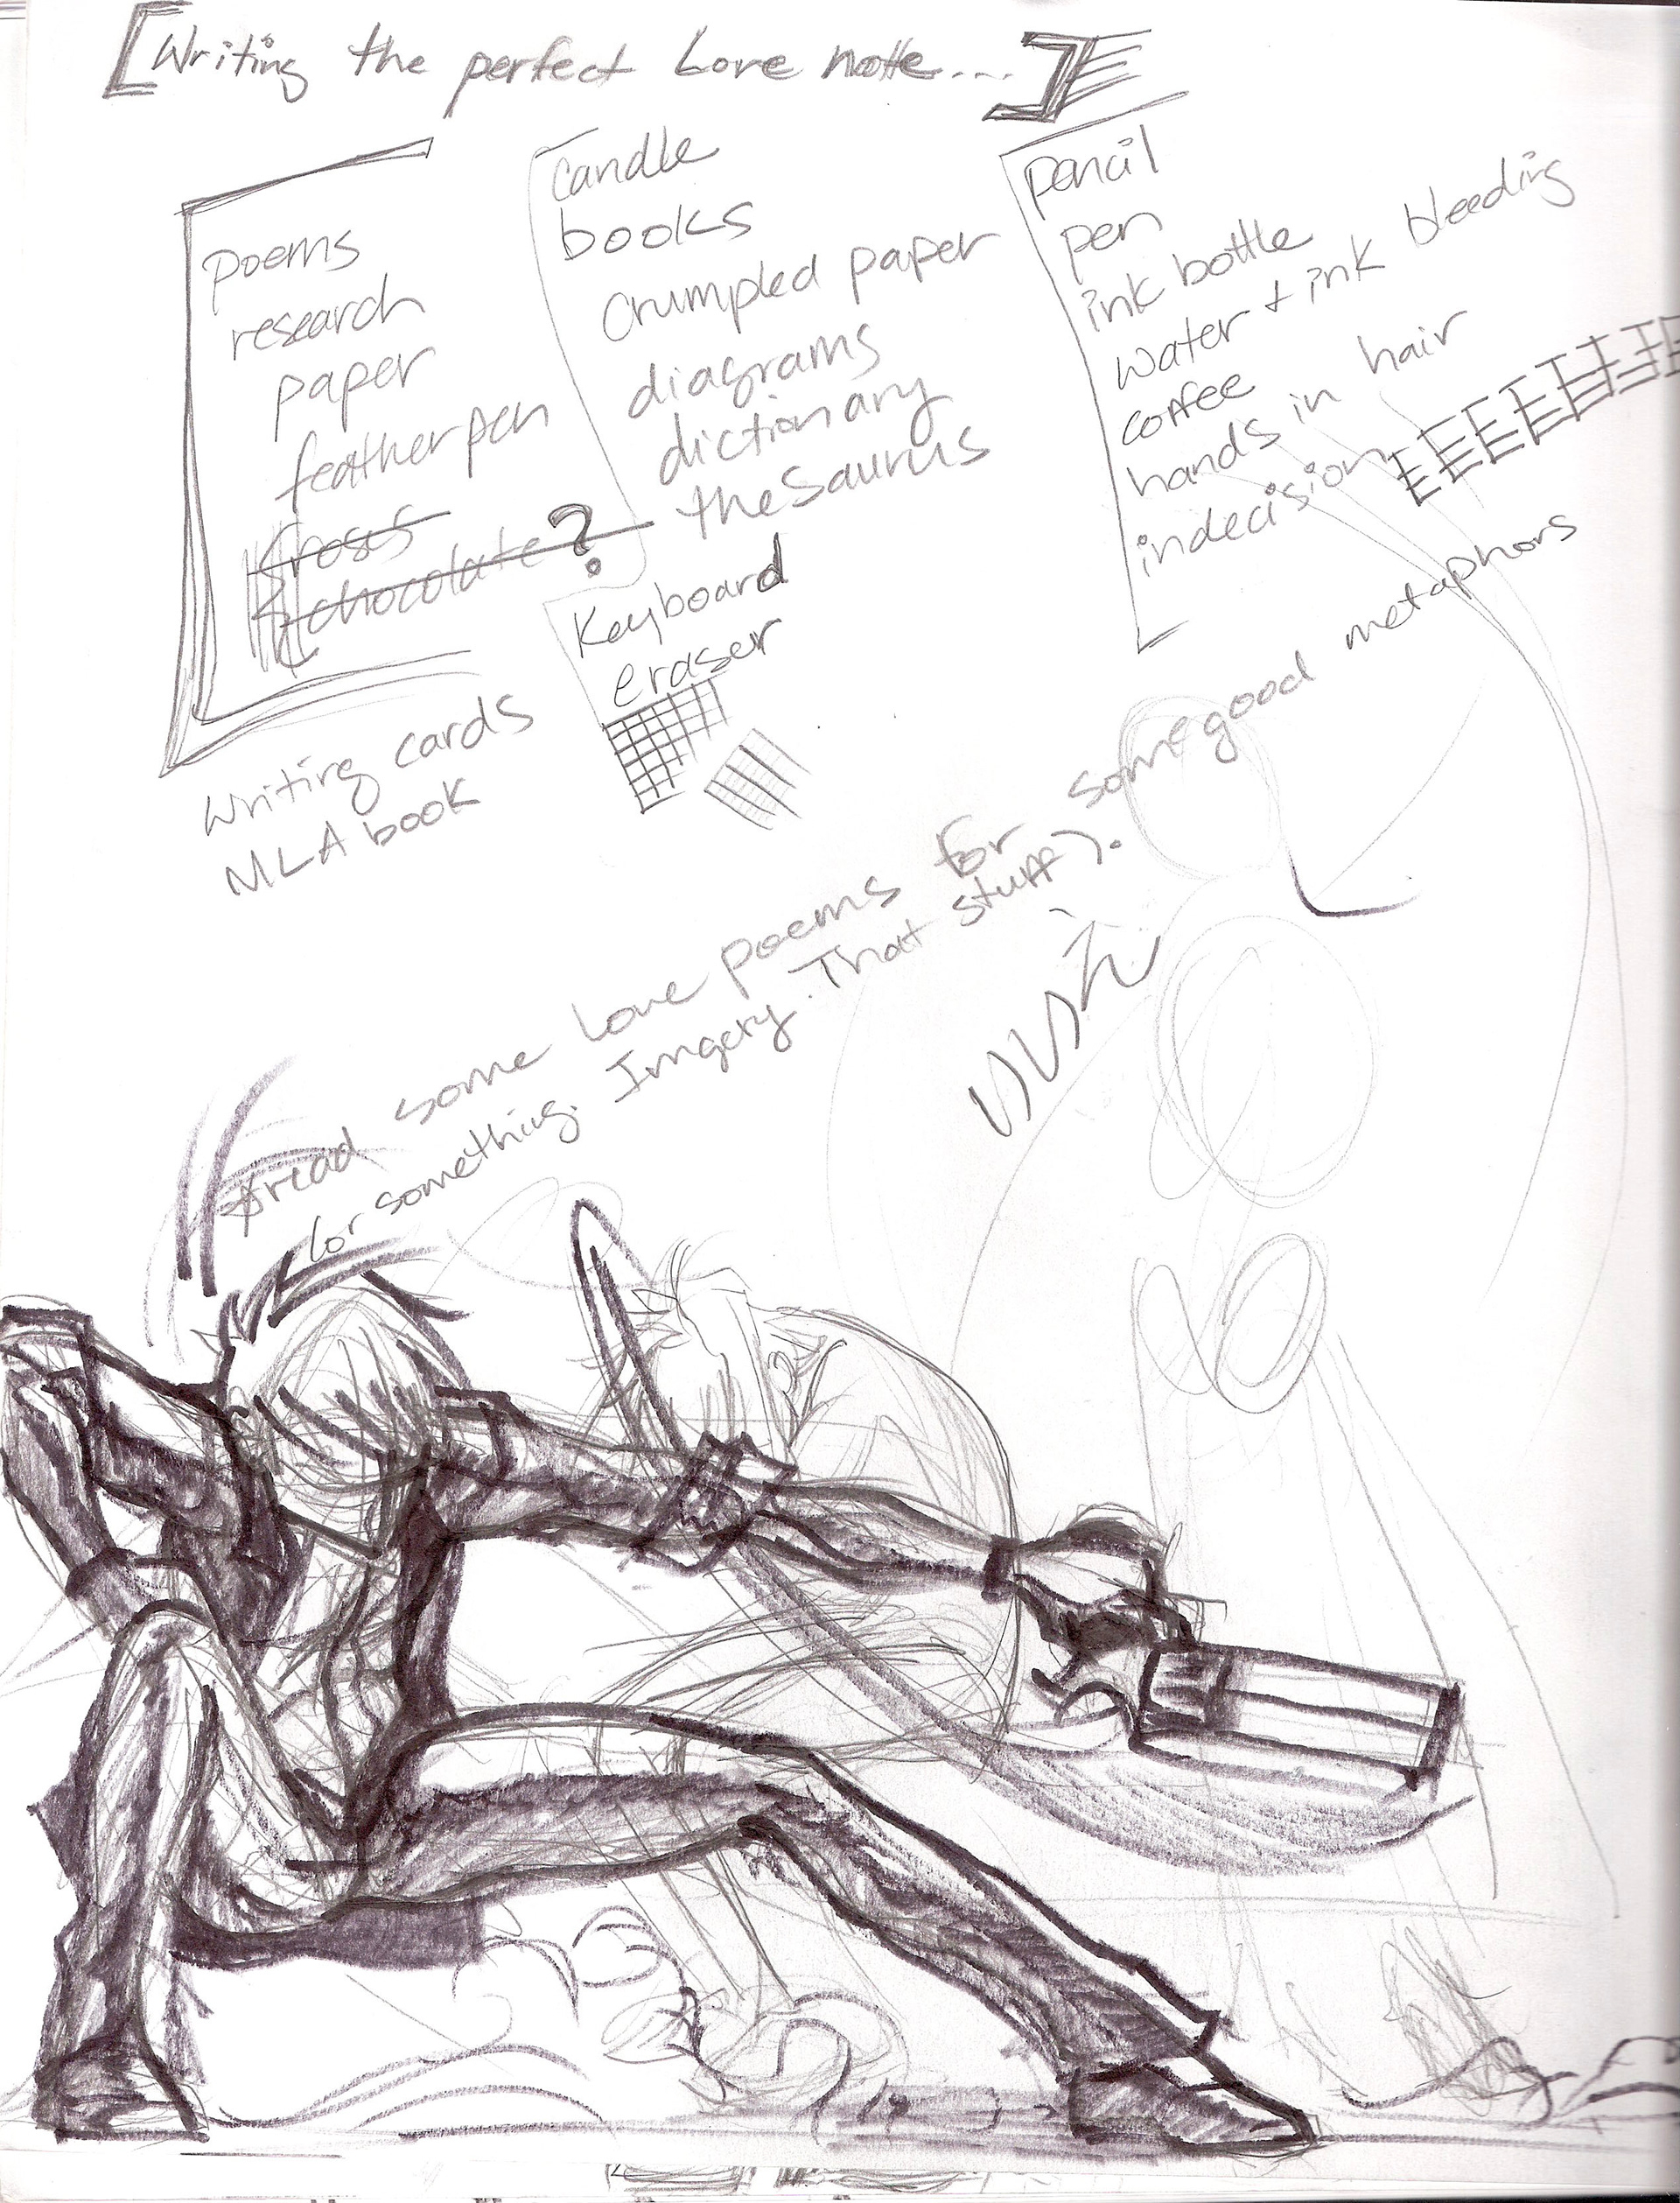 Writing the perfect Love note...
poems
research
paper
feather pen
roses
chocolate ?
Writing cards
MLA book
candle
books
crumpled paper
diagrams
dictionary
thesaurus
Keyboard
eraser
pencil
pen
ink bottle
water + ink bleeding
coffee
hands in hair
indecision
read some love poems for some good metaphors
(or something. Imagery. That stuff).